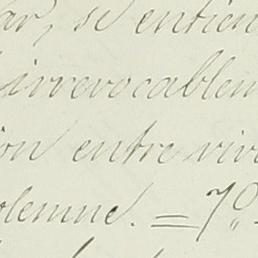 ar, se entien
irrevocablem
ion entre viv
olemne. = 7º